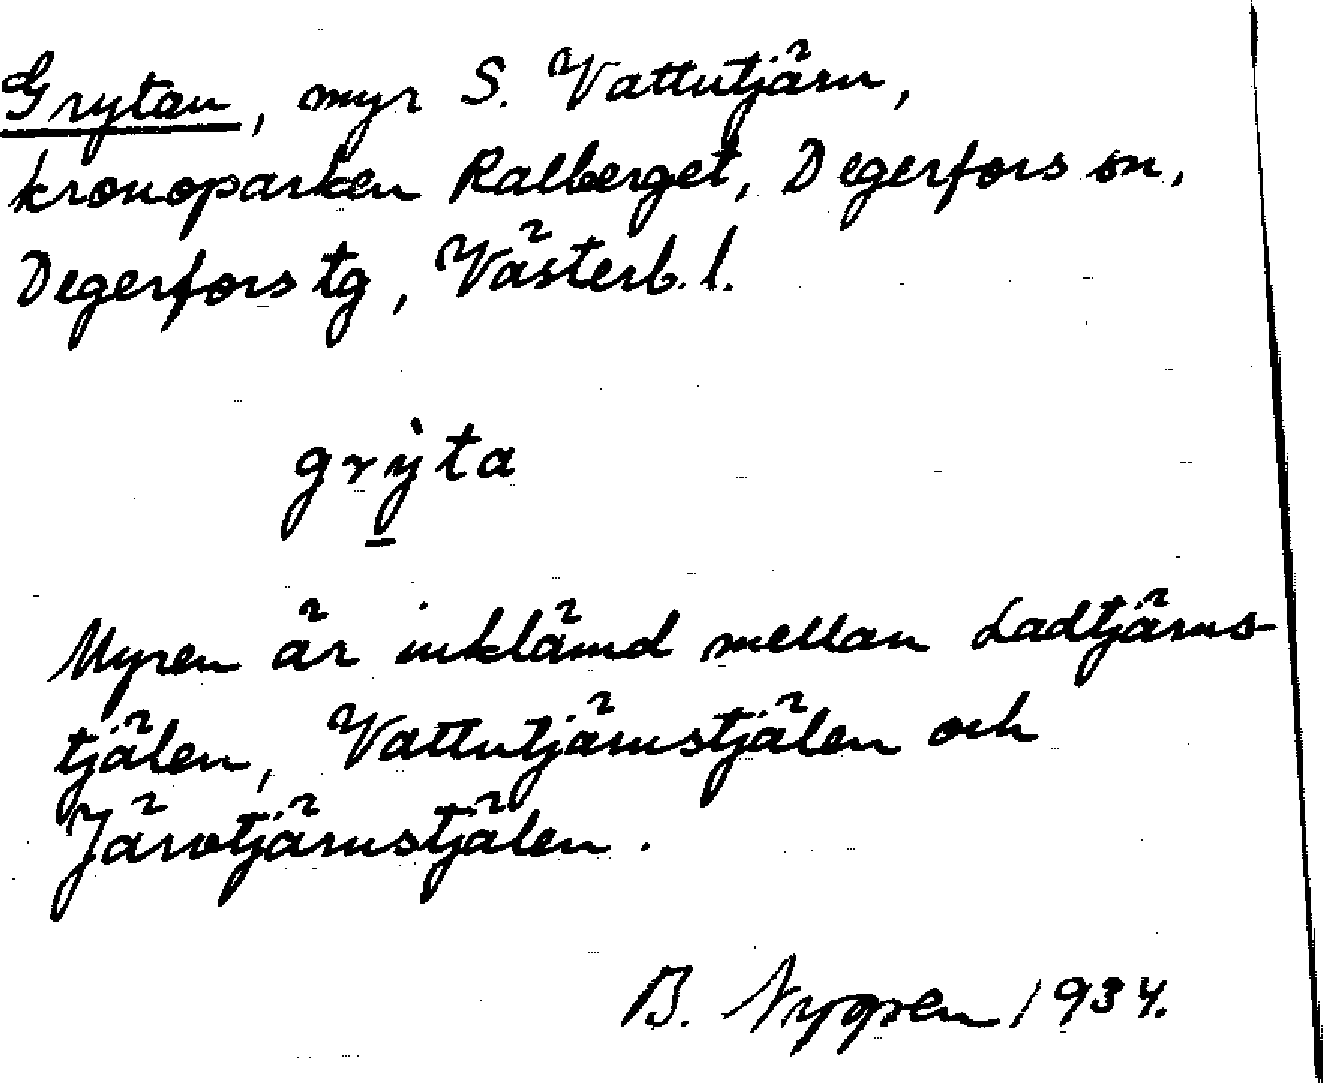 Grytan, myr S. Vattutjärn,
kronoparken Ralberget, Degerfors sn,
Degerfors tg, Västerb. l.
grỳta
Myren är inklämd mellan Ladtjärns-
tjälen, Vattutjärnstjälen och
Järvtjärnstjälen.
B. Nygren 1934.